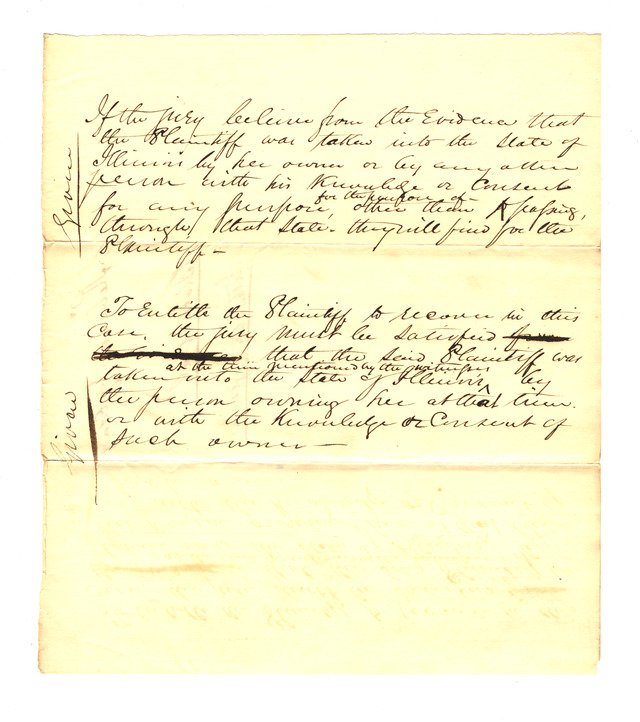 If the jury believe from the Evidence that
the Plaintiff was taken into the State of
Illinois by her owner or by any other
person with his Knowledge or Consent
for the purpose of
for any purpose, other than passing,
through, that State - they will find for the
Plaintiff -
Given
To Entitle the Plaintiff to recover in this
Case, the jury must be satisfied
that the said Plaintiff was
at the time mentioned by the witnesses
taken into the State of Illinois, by
the person owning her at that time.
or with the Knowledge or Consent of
Such owner -
Given